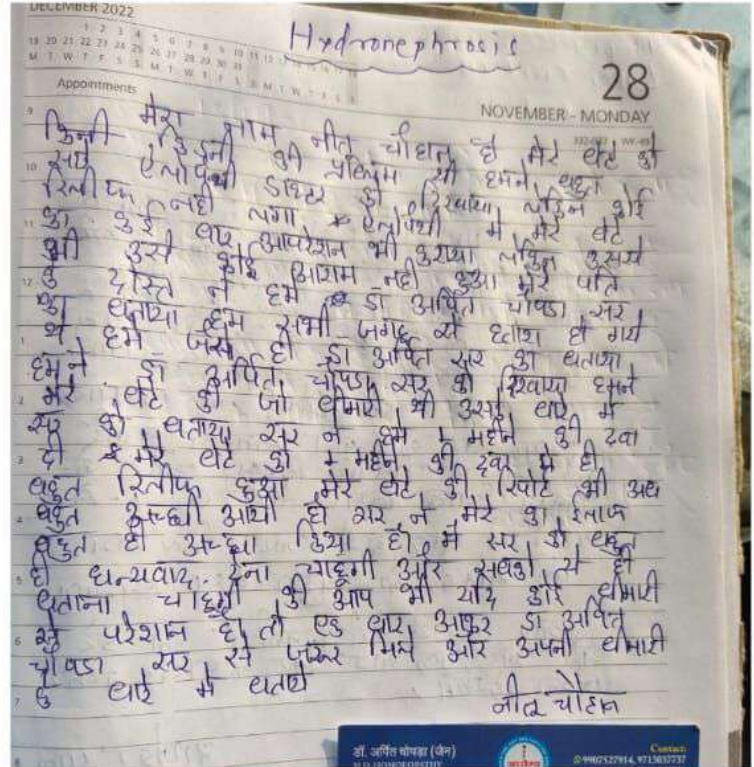 DECEMBER 2022
Hydronephrosis
28
NOVEMBER - MONDAY
Appointments
मेरा नाम नीतू चौहान है मेरे बेटे को
किडनी की प्रॉब्लम थी हमने बहुत
सारे ऐलोपेथी डाक्टर को दिखाया लेकिन कोई
रिलीफ नही लगा ऐलोपेथी मे मेरे बेटे
का कई बार आपरेशन भी कराया लेकिन उससे
भी उसे कोई आराम नही हुआ मेरे पति
के दोस्त ने हमे डॉ अर्पित चोपडा सर
का बताया हम सभी जगह से हताश हो गये
थे हमे जैसे ही डॉ अर्पित सर का बताया
हमने डॉ अर्पित चोपडा सर को दिखाया हमने
मेरे बेटे की जो बीमारी थी उसके बारे मे
सर को बताया सर ने हमे 1 महीने की दवा
दी मेरे बेटे को 1 महीने की दवा मे ही
बहुत रिलीफ हुआ मेरे बेटे की रिपोट भी अब
बहुत अच्छी आयी है सर ने मेरे का ईलाज
बहुत ही अच्छा किया है। मै सर को बहुत
ही धन्यवाद देना चाहूगी और सबको ये ही
बताना चाहूगी की आप भी यदि कोई बीमारी
से परेशान है तो एक बार आकर डा अर्पित
चोपडा सर से जरूर मिले और अपनी बीमारी
के बारे मे बताये
नीतू चौहान
डॉ. अर्पित चोपड़ा (जैन)
M.D. HOMOEOPATHY
Contact:
9907527914, 9713037737